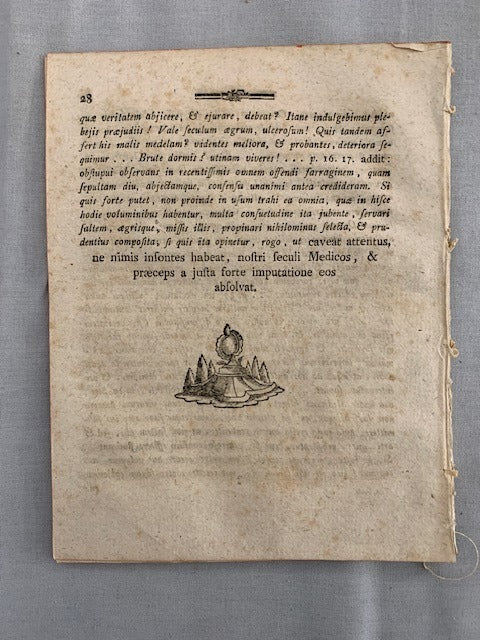 28
quæ veritatem abjicere, & ejurare, debeat? Itane indulgebimus ple-
bejis præjudiis! Vale ſeculum ægrum, ulceroſum! Quis tandem aſ-
fert his malis medelam? videntes meliora, & probantes, deteriora ſe-
quimur . . . Brute dormis? utinam viveres! . . . p. 16. 17. addit:
obſtupui obſervans in recentiſſimis ovnem offendi farraginem, quam
ſepultam diu, abjectamque, conſenſu unanimi antea credideram. Si
quis forte putet, non proinde in uſum trahi ea omnia, quæ in hiſce
hodie voluminibus habentur, multa conſuetudine ita jubente, ſervari
ſaltem, ægriſque, miſſis illis, propinari nihilominus ſelecta, & pru-
dentius compoſita; ſi quis ita opinetur, rogo, ut caveat attentus,
ne nimis inſontes habeat, noſtri ſeculi Medicos, &
præceps a juſta forte imputatione eos
abſolvat.